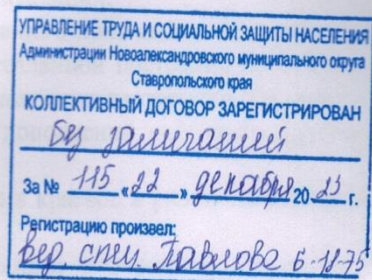 УПРАВЛЕНИЕ ТРУДА И СОЦИАЛЬНОЙ ЗАЩИТЫ НАСЕЛЕНИЯ
Администрации Новоалександровского муниципального округа
Ставропольского края
КОЛЛЕКТИВНЫЙ ДОГОВОР ЗАРЕГИСТРИРОВАН
без замечаний
За № 115 «22» декабря 2023 г.
Регистрацию произвел:
вед. спец. Павлова 6-18-75